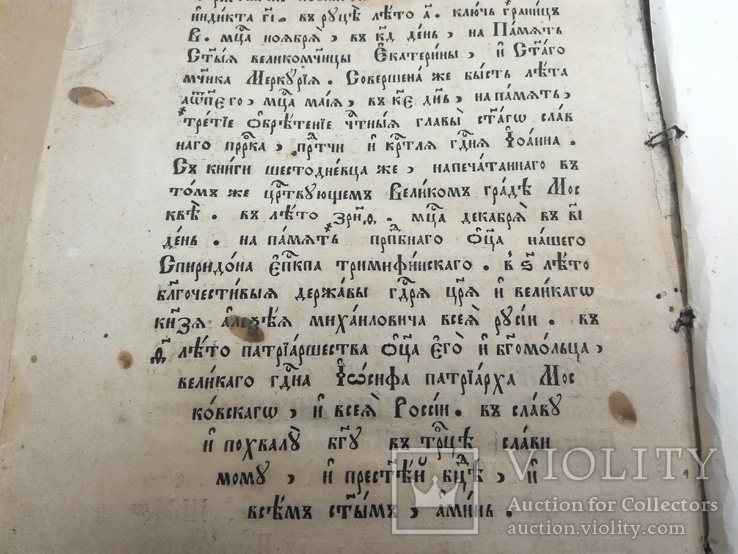 индикта гі. въ рꙋцѣ лѣто а҃. ключь границъ
в҃. мц҃а ноября҆, въ кд҃ день, на память
ст҃ыѧ великомч҃ницы Є҆катерины, и҆ ст҃аго
мч҃ника Меркꙋрїѧ. Совершена же бысть лѣта
мц҃а маїѧ, въ ке҃ дн҃ь, на память,
третїе ѻ҆брѣтенїе чт҃ныѧ главы ст҃агѡ слав
наго прⷪ҇рка, прⷣтчи и҆ крⷭ҇тлѧ гдⷭ҇нѧ І҆ѡа́нна.
Съ книги шестодневца же, напечатаннаго въ
томъ же црⷭ҇твꙋющемъ Великомъ градѣ Мос
квѣ. въ лѣто зрн҃ѳ. мц҃а декабрѧ въ в҃і
день. на память прпⷣбнаго ѻ҆ц҃а нашего
Спиридѡ́на є҆пⷭ҇кпа тримиѳи́нскаго. в ѕ҃ лѣто
блг҃очести́выѧ держа́вы гдⷭ҇рѧ цр҃ѧ и҆ великагѡ
кнѧ҃зѧ а҆леѯѣѧ миха́иловича всеѧ̀ рꙋсїи. въ
ѳ҃ лѣто патрїа́ршества ѻ҆ц҃а є҆гѡ̀ и҆ бг҃омо́льца,
вели́каго гдⷭ҇на І҆ѡ́сифа патрїа́рха Мос
ко́вскагѡ, и҆ всеѧ̀ Росси́и. въ сла́вꙋ
и҆ похвалꙋ̀ бг҃ꙋ въ трⷪ҇цѣ сла́ви
мому, и҆ прест҃ѣ́й бц҃ѣ, и҆
всѣ́мъ ст҃ы́мъ, а҆ми́нь.
VIOLITY
Auction for Collectors
auction.violity.com